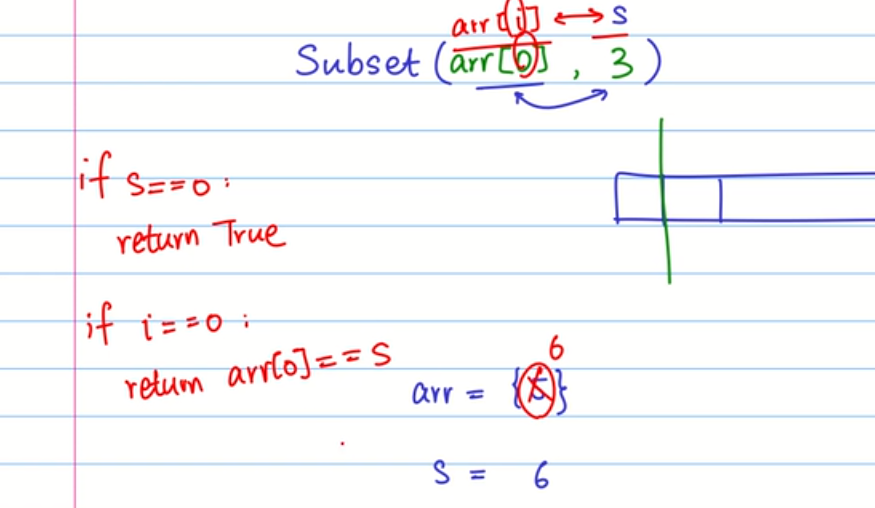 arr[i] ↔ s
Subset (arr[0], 3)
if s==0:
return True
if i==0:
return arr[0]==s
6
arr = { }
s = 6